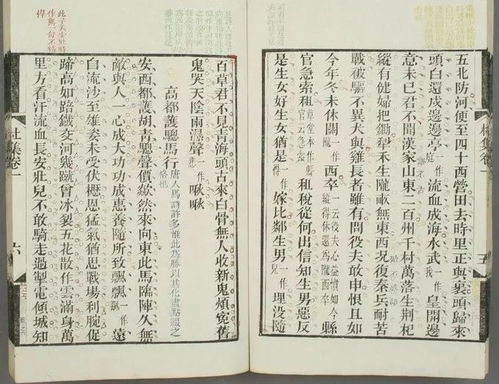 五北防河便至四十西營田去時里正與裹頭歸來
頭白還戍邊邊亭一作庭流血成海水武一作皇開邊
意未已君不聞漢家山東二百州千村萬落生荆杞
縱有健婦把鋤犂禾生隴畝無東西況復秦兵耐苦
戰被驅不異犬與雞長者雖有問役夫敢申恨且如
今年冬未休關一作西卒一云役夫心益憤如今縱得休還為隴西卒縣
官急索租租稅從何出信知生男惡反
是生女好生女猶是一作嫁比鄰生男一作兒埋没隨
百草君不見青海頭古來白骨無人收新鬼煩冤舊
鬼哭天陰雨濕聲一作啾啾
高都護驄馬行
安西都護胡青驄聲價欻然來向東此馬臨陣久無
敵與人一心成大功功成惠養隨所致飄飄一作遠
自流沙至雄姿未受伏櫪恩猛氣猶思戰場利腕促
蹄高如踣鐵交河幾蹴曾冰裂五花散作雲滿身萬
里方看汗流血長安壯兒不敢騎走過掣電傾城知
杜集卷一
六